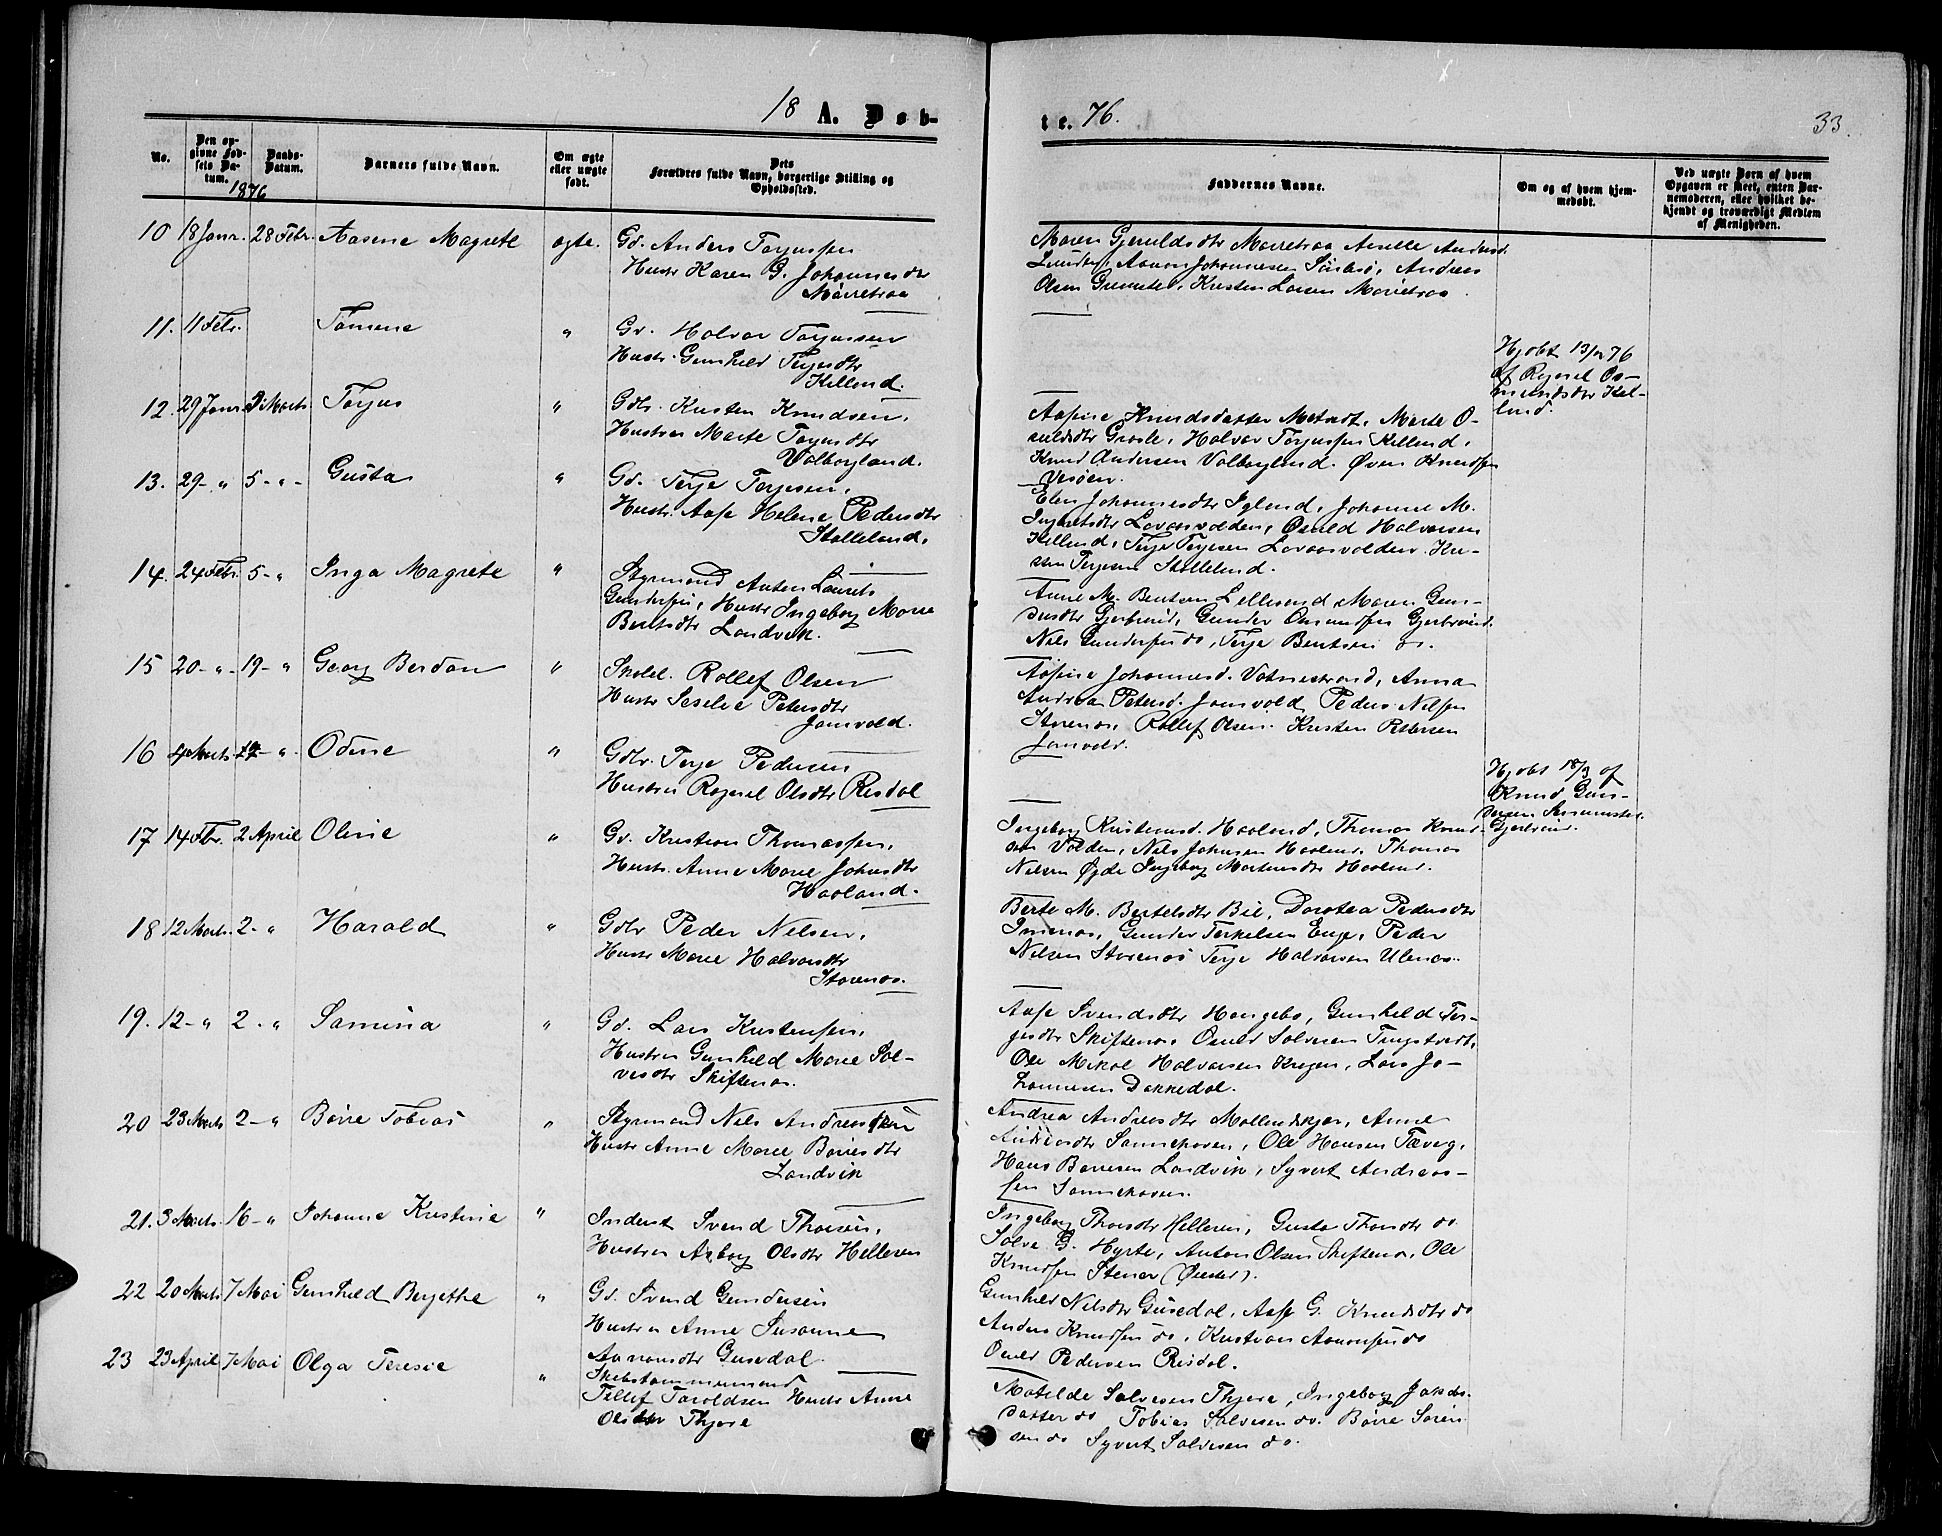 18 A. Døb-
te. 76.
33.
No.
Den op-
givne Fød-
sels Da-
tum.
1876
Daabs-
Datum.
Barnets fulde Navn.
Om ægte
eller uægte
født.
Dets
Forældres fulde Navn, borgerlige Stilling og
Opholdssted.
Faddernes Navne.
Om og af hvem hjem-
medøbt.
Ved uægte Børn af hvem
Opgaven er skeet, enten Bar-
nemoderen, eller hvilket be-
kjendt og troværdigt Medlem
af Menigheden.
10 18 Janr. 28 Febr. Aasene Magrete ægte. Gd. Anders Torjussen
Hustr Karen G. Johannesdtr
Mørretraa
Maren Gjeruldsdtr Aanon Johannesen Andreas
Olsen Kristen Larsen
11. 11 Febr. Tomine " Gd. Halvor Torjussen
Hustr. Gunhild Terjesdtr
Kelland.
Hjdbt 13/2 76
af Ragnil Os-
mundsdtr Kel-
land.
12. 29 Janr 5 Marts Torjus " Gdbr. Kristen Knudsen,
Hustru Marte Torjusdtr
Valborgland.
Knudsdatter Marte O-
suldsdtr Halvor Torjussen Kelland,
Knud Andersen Valborgland. Øven Knudsen
13. 29- " 5-"- Gusta " Gd. Terje Terjesen,
Hustr. Aase Helene Pedersdtr
Stalleland.
Elen Johannesdtr Igland, Johanne M.
Lovaasvolden, Osuld Halvorsen
Kelland, Terje Terjesen Lovaasvolden. Kri-
sten Terjesen Stalleland.
14. 24 Febr. 5-" Inga Magrete " Styrmand Anton Laurits
Gundersen, Hustr Ingeborg Marie
Bentsdtr Landvik.
Anne M. Bentsen Lillesand Maren Gun-
dersdtr Gjerbrønd, Gunder Gjerbrønd.
Nils Gundersen do, Terje Bentsen do.
15 20-". 19-" Georg Berdon " Skolel. Rollef Olsen
Hustr Seselie Petersdtr
Jomvold.
Johannesd. Vatnestrand, Anna
Andrea Petersd. Jomvold, Peder Nilsen
Storenos, Rollef Olsen. Kristen Petersen
Jomvold.
16 4 Marts 19-". Odine " Gdbr. Terje Pedersen
Hustru Ragnil Olsdtr Risdal
Hjdbt 18/3 af
Knud Gun-
dersen
Gjerbrønd.
17 14 Febr. 2 April Oline " Gd. Kristian Thomassen,
Hustr. Anne Marie Johnsdtr
Haaland.
Ingeborg Kristensd. Haaland, Thomas Knud-
sen Volden, Nils Johnsen Haaland. Thomas
Nilsen Øyde Ingeborg Mortensdtr Haaland.
18 12 Marts. 2-" Harald " Gdbr Peder Nilsen,
Hustr Marie Halvorsdtr
Storenos.
Berte M. Bertelsdtr Bie, Dorotea Pedersdtr
Imenos, Gunder Terkelsen Enge, Peder
Nilsen Storenos Terje Halvorsen Ulenos.
19. 12-" 2-" Samina " Gd. Lars Kristensen,
Hustru Gunhild Marie Sal-
vesdtr Skiftenos.
Aase Svendsdtr Haugebo, Gunhild Ter-
jesdtr Skiftenos. Osuld Salvesen Tingstvedt,
Ole Mikal Halvorsen Kragen, Lars Jo-
hannesen Dakkedal.
20 23 Marts 2-" Børre Tobias " Styrmand Nils Andreassen
Hustr Anne Marie Børresdtr
Landvik
Andrea Andreasdtr Mollandskjær, Anne
Andreasdtr Sannehaven, Ole Hansen Tæveg,
Hans Børresen Landvik, Syvert Andreas-
sen Sannehaven.
21. 3 Marts. 16-" Johanne Kristine " Inderst Svend Thorsen,
Hustru Asborg Olsdtr Helleren
Ingeborg Thorsdtr Helleren, Gusta Thorsdtr do.
Salve G. Hyrte, Anton Olsen Skiftenos, Ole
Knudsen Stener
22 20 Marts 7 Mai Gunhild Bergethe " Gd. Svend Gundersen
Hustru Anne Susanne
Aanonsdtr Gusedal.
Gunhild Nilsdtr Gusedal, Aase G. Knudsdtr do
Anders Knudsen do, Kristian Aanonsen do
Osuld Pedersen Risdal.
23 23 April 7 Mai Olga Teresie " Skibstømmermand
Tellef Taraldsen Hustr Anne
Olsdtr Thjøre
Matilde Salvesen Thjøre, Ingeborg Jakobs-
datter do Tobias Salvesen do. Børre Søren-
sen do Syvert Salvesen do.